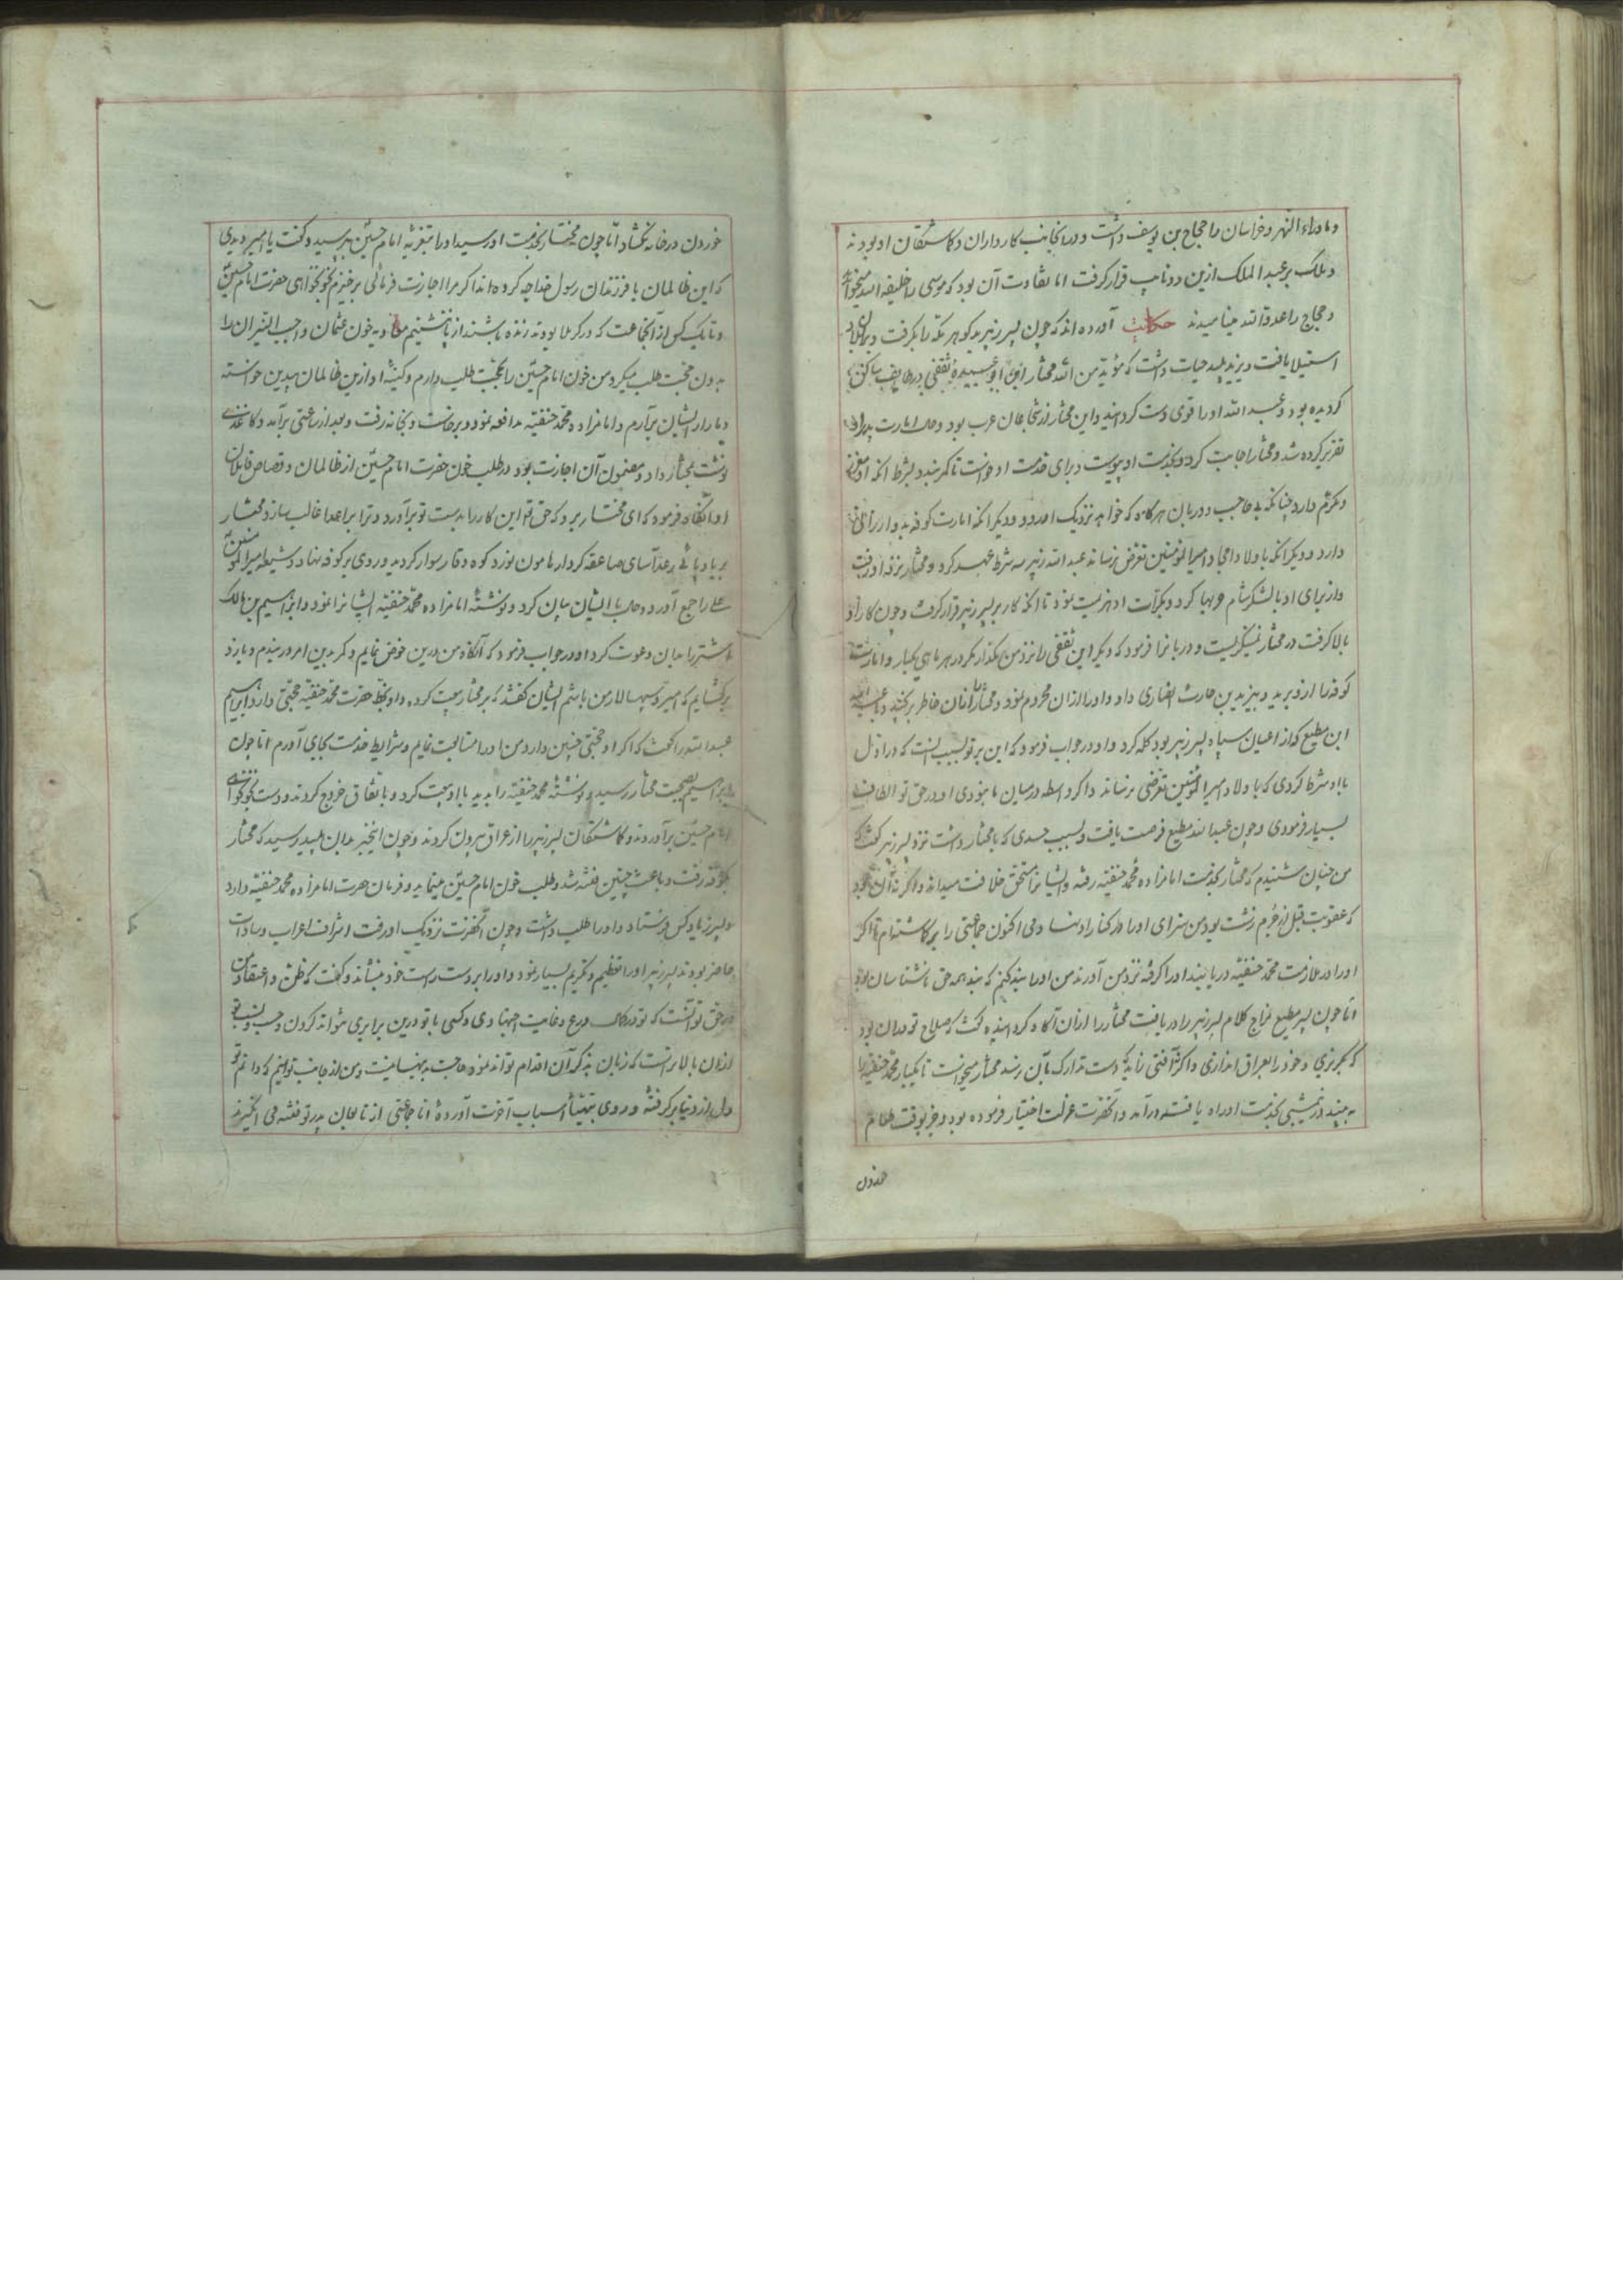 وماوراء النهر وخراسان را حجاج بن یوسف داشت و در انجانب کارداران و کاشتکان او بودند
وملک بر عبد الملک ازین دو نایب قرار کرفت اما تفاوت آن بود که موسی را خلیفه الله میخواند
و حجاج را عدو الله مینامیدند حکایت آورده اند که چون پسر زبیر بدگوهر مکه را بکرفت و بران بلاد
استیلا یافت و یزید پلید حیات داشت که مؤید من الله مختار ابن ابو عبیده ثقفی در طایف ساکن
کردیده بود و عبد الله او را قوی دست کردانید و این مختار از شجاعان عرب بود و امارت
تقریر کرده شد و مختار اجابت کرد و بخدمت او پیوست و برای خدمت او خواست تا کمر بندد بشرط انکه او معزز
و مکرم دارد چنانکه بی حاجب و دربان هرگاه که خواهد نزدیک او در رود و دیکر انکه امارت کوفه بدو ارزانی
دارد و دیکر انکه با ولاد امجاد امیر المؤمنین تعرض نرساند عبد الله زبیر سه شرط عهد کرد و مختار نزد او رفت
و از برای او با لشکر شام حربها کرد و بکرات او هزیمت نمود تا انکه کار بر پسر زبیر قرار کرفت و چون کار او
بالا کرفت در مختار ننیکریست و دربانرا فرمود که دیکر این ثقفی را نزد من نکذار مکر در هر ماهی یکبار و امارت
کوفه را از و برید و بیزید بن حارث انصاری داد و او را ازان محروم نمود و مختار ازان خاطر برکنجید و عبد الله
ابن مطیع که از اعیان سپاه پسر زبیر بود کله کرد و او در جواب فرمود که این بر تو بسبب انست که در اول
با او شرط کردی که با ولاد امیر المؤمنین تعرضی نرساند و اکر واسطه در میان ما نبودی او در حق تو الطاف
بسیار فرمودی و چون عبد الله مطیع فرصت یافت و بسبب حسدی که با مختار داشت نزد پسر زبیر کفت که
من چنان شنیدم که مختار بخدمت امامزاده محمد حنفیه رفته و ایشانرا مستحق خلافت میداند و اکر نه آن بود
که عقوبت قبل از جرم زشت بود من سزای او را در کنار او نهادمی اکنون جماعتی را بر کماشته ام تا اکر
او را در ملازمت محمد حنفیه دریابند او را کرفته نزد من آورند من او را بند کنم که بند همه حق ناشناسان بود
اما چون پسر مطیع مزاج کلام پسر زبیر را دریافت مختار را ازان آکاه کردانیده کفت که صلاح تو دران بود
که بکریزی و خود را بعراق اندازی و اکر نه آفتی زاید که دست تدارک بآن نرسد مختار میخواست تا یکبار محمد حنفیه را
به بیند در نیمشبی بخدمت او راه یافته در آمد و آنحضرت عزلت اختیار فرموده بود و جز بوقت طعام
خوردن
خوردن در خانه نکشاد اما چون مختار بخدمت او رسید او را بتعزیه امام حسین بپرسید و کفت یا امیر دیدی
که این ظالمان با فرزندان رسول خدا چه کرده اند اکر مرا اجازت فرمائی برخیزم بخونخواهی حضرت امام حسین
و تا یک کس از آنجماعت که در کربلا بودند زنده باشند از پا ننشینم معاویه خون عثمان واجب النیران را
بدون محبت طلب میکرد من خون امام حسین را بمحبت طلب دارم و کینه او ازین ظالمان بدین خواسته
دمار از ایشان برآرم و امامزاده محمد حنفیه مدافعه نمود و برخاست و بخانه رفت و بعد از ساعتی برآمد و کاغذی
نوشت بمختار داد و مضمون آن اجازت بود در طلب خون حضرت امام حسین از ظالمان و قصاص قاتلان
او آنکاه فرمود که ای مختار برو که حق تع این کار را بدست تو برآورد و ترا بر اعدا غالب سازد مختار
بر بادپائے رعدآسای صاعقه کردار هامون نورد کوه وقار سوار کردید و روی بر کوفه نهاد و شیعه امیر المؤمنین
علے را جمع آورده با ایشان بیان کرد و نوشته امامزاده محمد حنفیه ایشانرا نمود و ابراهیم بن مالک
اشتر را بدان دعوت کرد او در جواب فرمود که آنکاه من درین خوض نمایم و کمر بدین امر در بندم و بازو
برکشایم که امیر و سپهسالار من باشم ایشان کفتند که بر مختار بیعت کرده و او بخط حضرت محمد حنفیه حجتی دارد ابراهیم
عبدالله را کفت که اکر او حجتی چنین دارد من او را متابعت نمایم و شرایط خدمت بجای آورم اما چون
ابراهیم بصحبت مختار رسید و نوشته محمد حنفیه را بدید با او بیعت کرد و باتفاق خروج کردند و دست
امام حسین برآوردند و کماشتکان پسر زبیر را از عراق بیرون کردند و چون اینخبر بدان پلید رسید که مختار
بکوفه رفت و باعث چنین فتنه شد و طلب خون امام حسین مینماید و فرمان حضرت امامزاده محمد حنفیه دارد
پسر زبیر کس فرستاد و او را طلب داشت و چون آنحضرت نزدیک او رفت اشراف اعراب و سادات
حاضر بودند پسر زبیر او را تعظیم و تکریم بسیار نمود و او را بر دست راست خود بنشاند و کفت که ظن و اعتقاد من
در حق تو آنست که تو در کمال ورع و غایت اجتهادی و کسی با تو درین برابری نتواند کردن و حسب و نسب تو
ازان بالاتر است که زبان بذکر آن اقدام تواند نمود حاجت به بینه نیست و من از جانب تو ایمنم که دانم تو
دل از دنیا برکرفته و روی بتهیأ اسباب آخرت آورده اما جماعتی از تابعان پدر تو فتنه می انگیزند